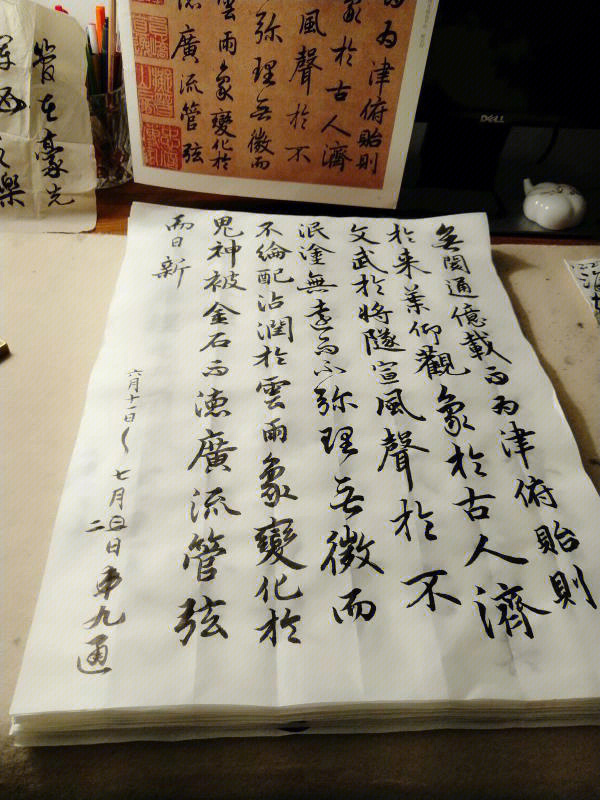 為津俯貽則
象於古人濟
風聲於不
弥理無微而
雲雨象變化於
德廣流管弦
DELL
在豪先
樂
無閡通億載而為津俯貽則
於来葉仰觀象於古人濟
文武於将隧宣風聲於不
泯塗無遠而不弥理無微而
不綸配沾潤於雲雨象變化於
鬼神被金石而德廣流管弦
而日新
六月十一日~七月二日 第九通